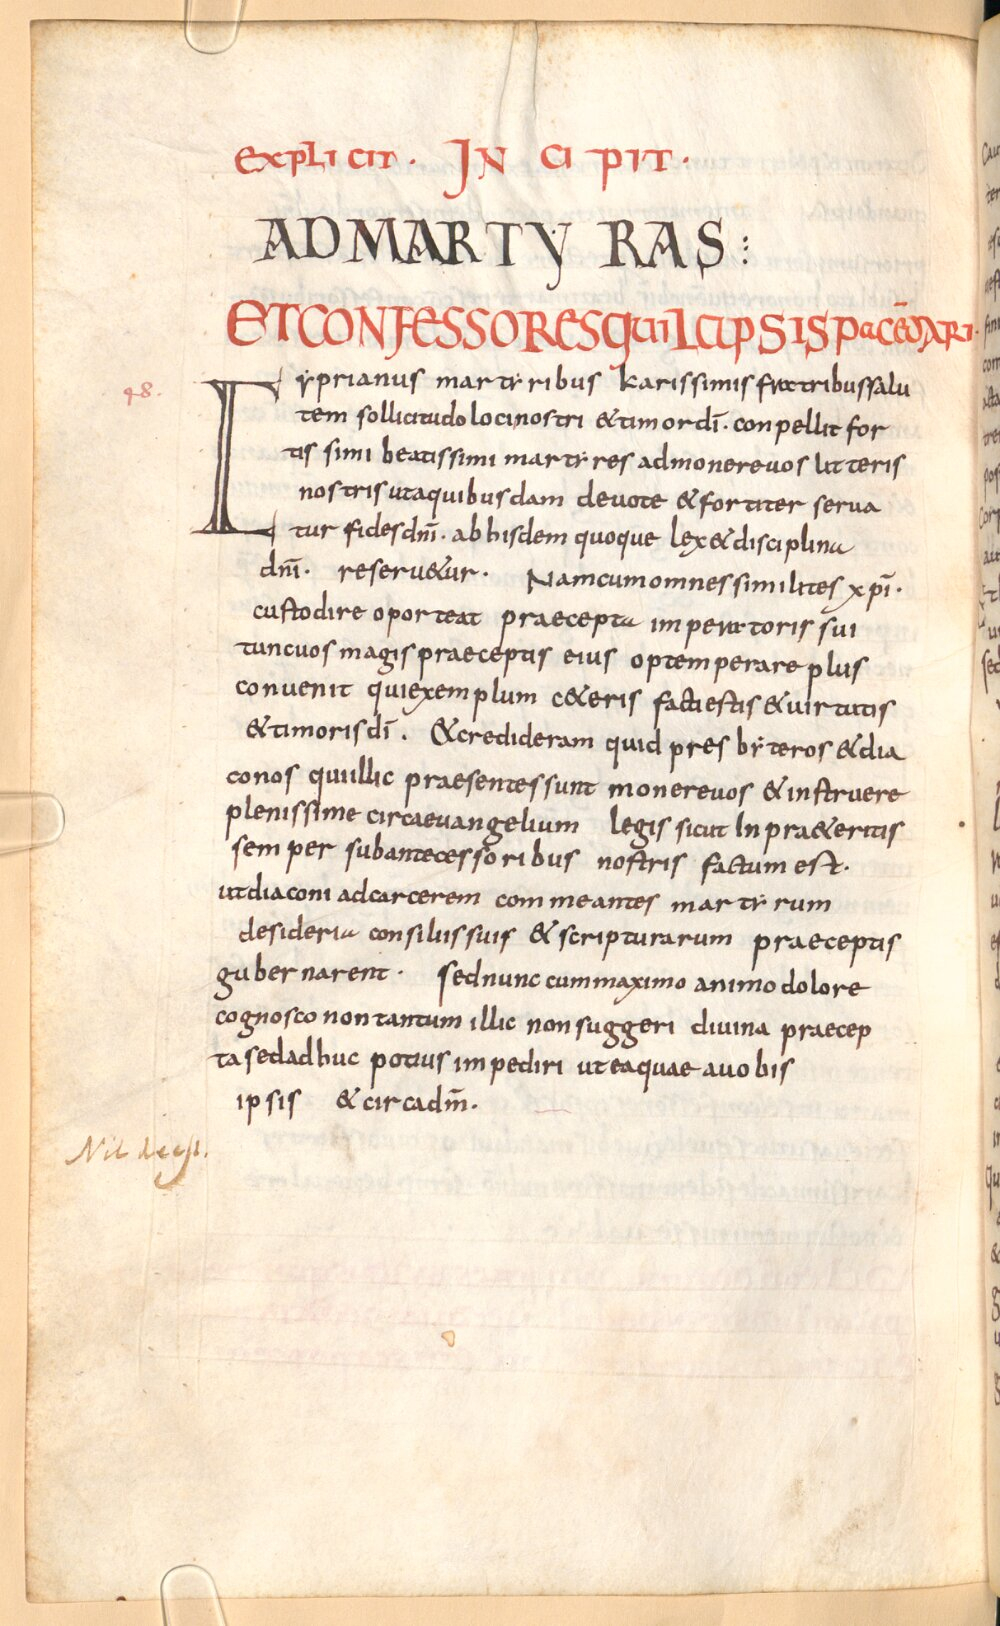 Explicit. IN CI PIT.
AD MARTY RAS:
ET CONFESSORES QUI LAPSIS PACĒ DARI.
48.
Cyprianus martyribus karissimis fratribus salu
tem sollicitudo loci nostri & timor dī. conpellit for
tis simi beatissimi martyres admonere vos litteris
nostris ut a quibusdam devote & fortiter serva
tur fides dnī. ab hisdem quoque lex & disciplina
dnī. reserv&ur. Nam cum omnes similites xpī.
custodire oporteat praecepta imperatoris sui
tunc uos magis praeceptis eius optemperare plus
convenit qui exemplum c&eris facti estis & virtutis
& timoris dī. & credideram quid presbyteros & dia
conos qui illic praesentes sunt monere vos & instruere
plenissime circa evangelium legis sicut In pra&eritis
semper sub antecessoribus nostris factum est.
ut diaconi ad carcerem commeantes martyrum
desideria consiliis suis & scripturarum praeceptis
gubernarent. sed nunc cum maximo animo dolore
cognosco non tantum illic non suggeri divina praecep
ta sed adhuc potius impediri ut ea quae a vobis
ipsis & circa dnm̄.
Nil deest.